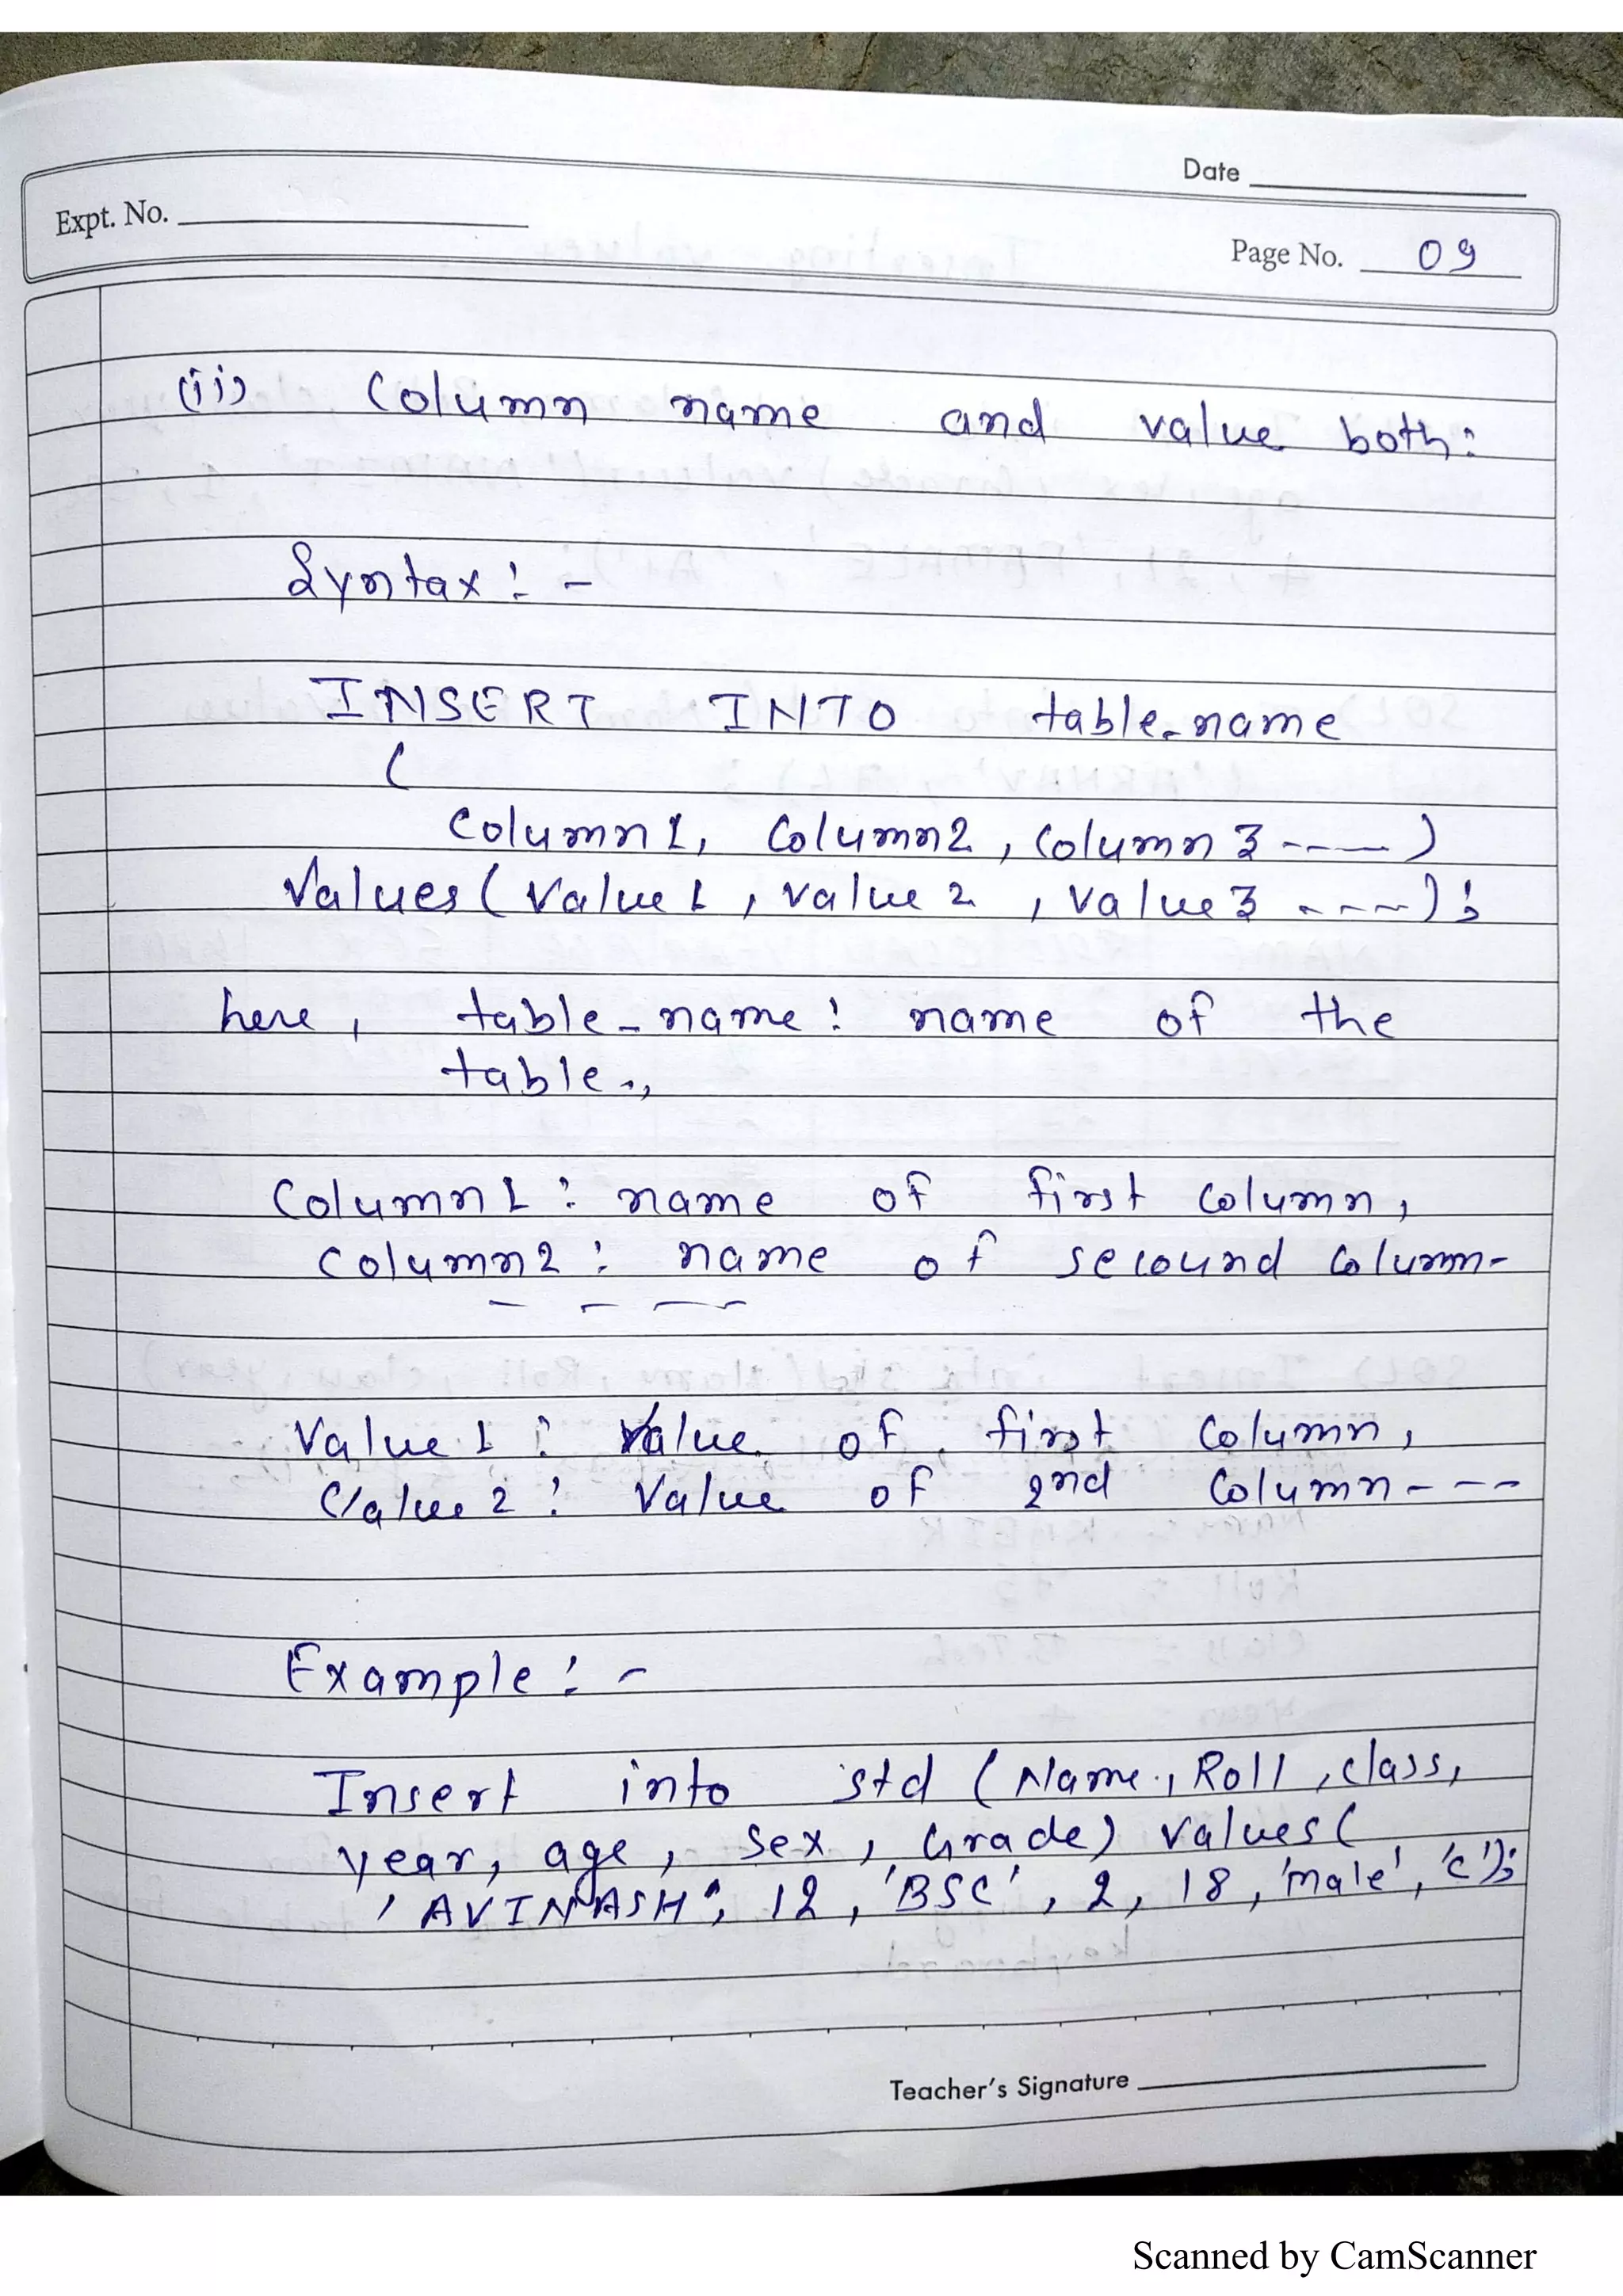 Date
Expt. No.
Page No. 09
(ii) Column name and value both:
Syntax: -
INSERT INTO table_name
(
Column1, Column2, Column3 ----)
Values(Value1, value2, value3 ----);
here, table_name: name of the
table.,
Column1: name of first column,
Column2: name of secound Column-
- - - -
Value1: Value of first Column,
Value2: Value of 2nd Column---
Example: -
Insert into std (Name, Roll, class,
year, age, Sex, Grade) values(
'AVINASH', 12, 'BSC', 2, 18, 'male', 'C');
Teacher's Signature
Scanned by CamScanner